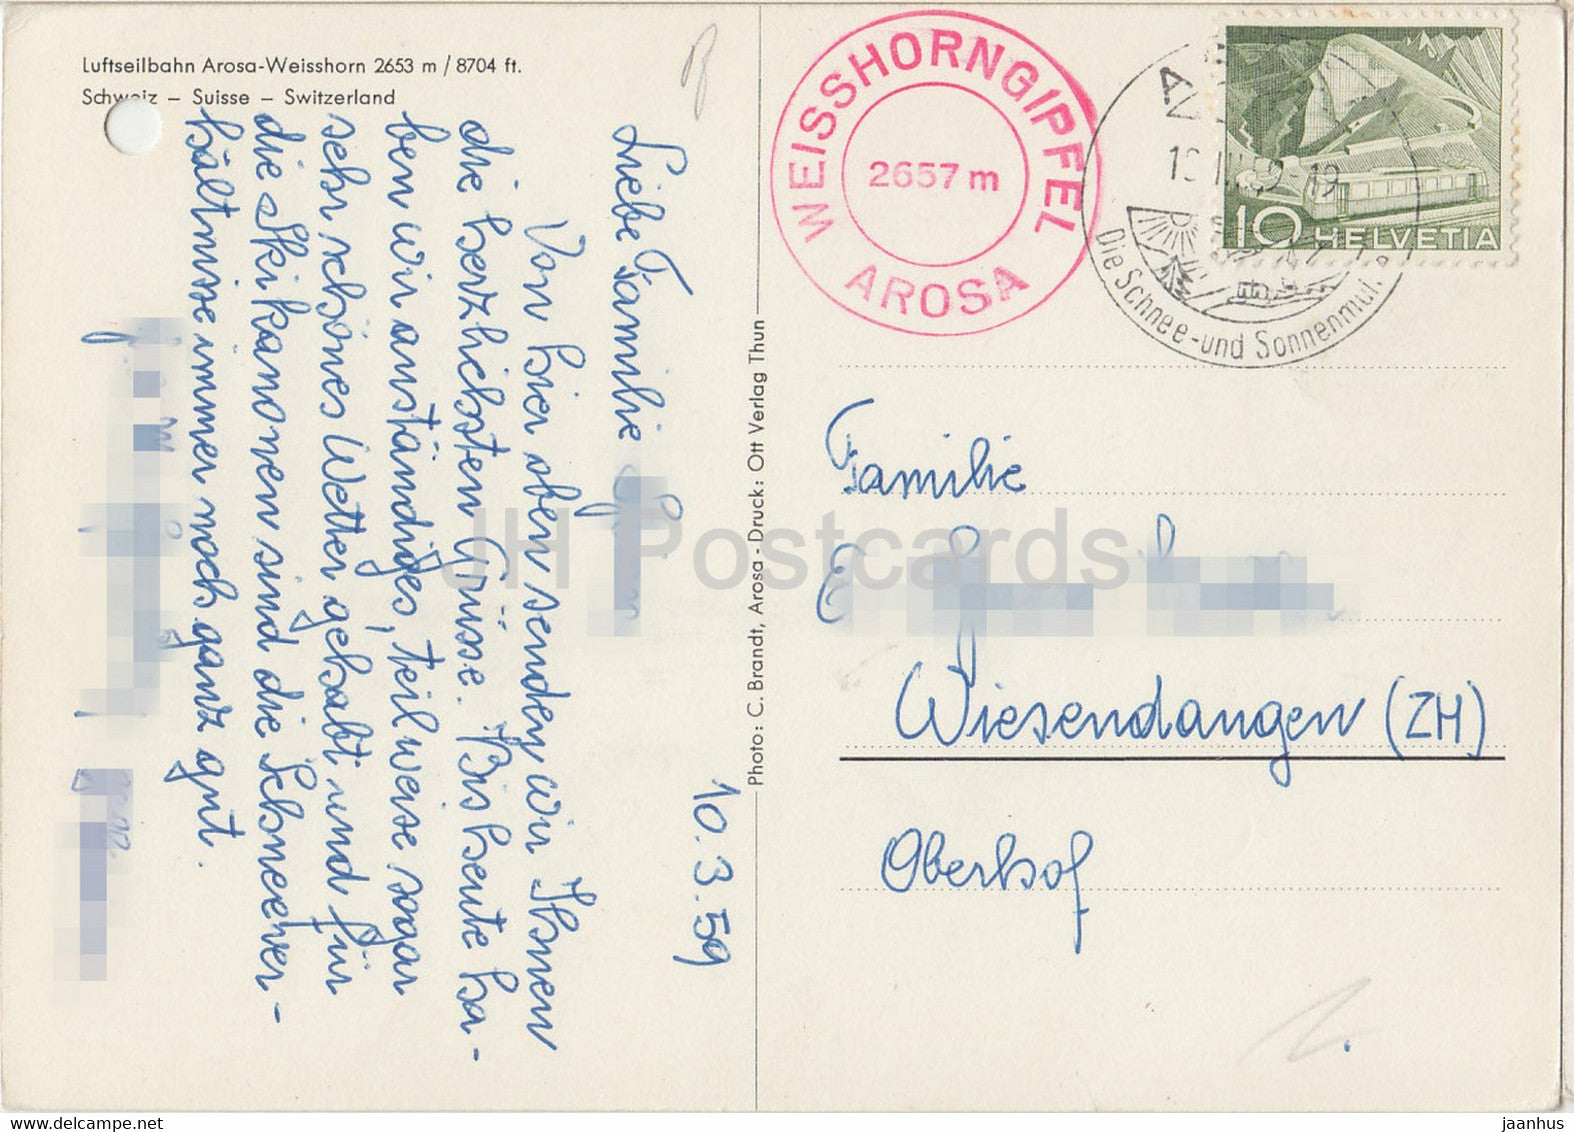 Luftseilbahn Arosa-Weisshorn 2653 m / 8704 ft.
Schweiz – Suisse – Switzerland
10.3.59
Liebe Familie
Von hier oben senden wir Ihnen
die herzlichsten Grüsse. Bis heute ha-
ben wir anständiges, teilweise sogar
sehr schönes Wetter gehabt und für
die Skikanonen sind die Schneever-
hältnisse immer noch ganz gut.
Photo: C. Brandt, Arosa - Druck: Ott Verlag Thun
WEISSHORNGIPFEL
2657 m
AROSA
10 HELVETIA
Die Schnee- und Sonnenmul.
Familie
Wiesendangen (ZH)
Oberhof
JH Postcards
www.delcampe.net
jaanhus